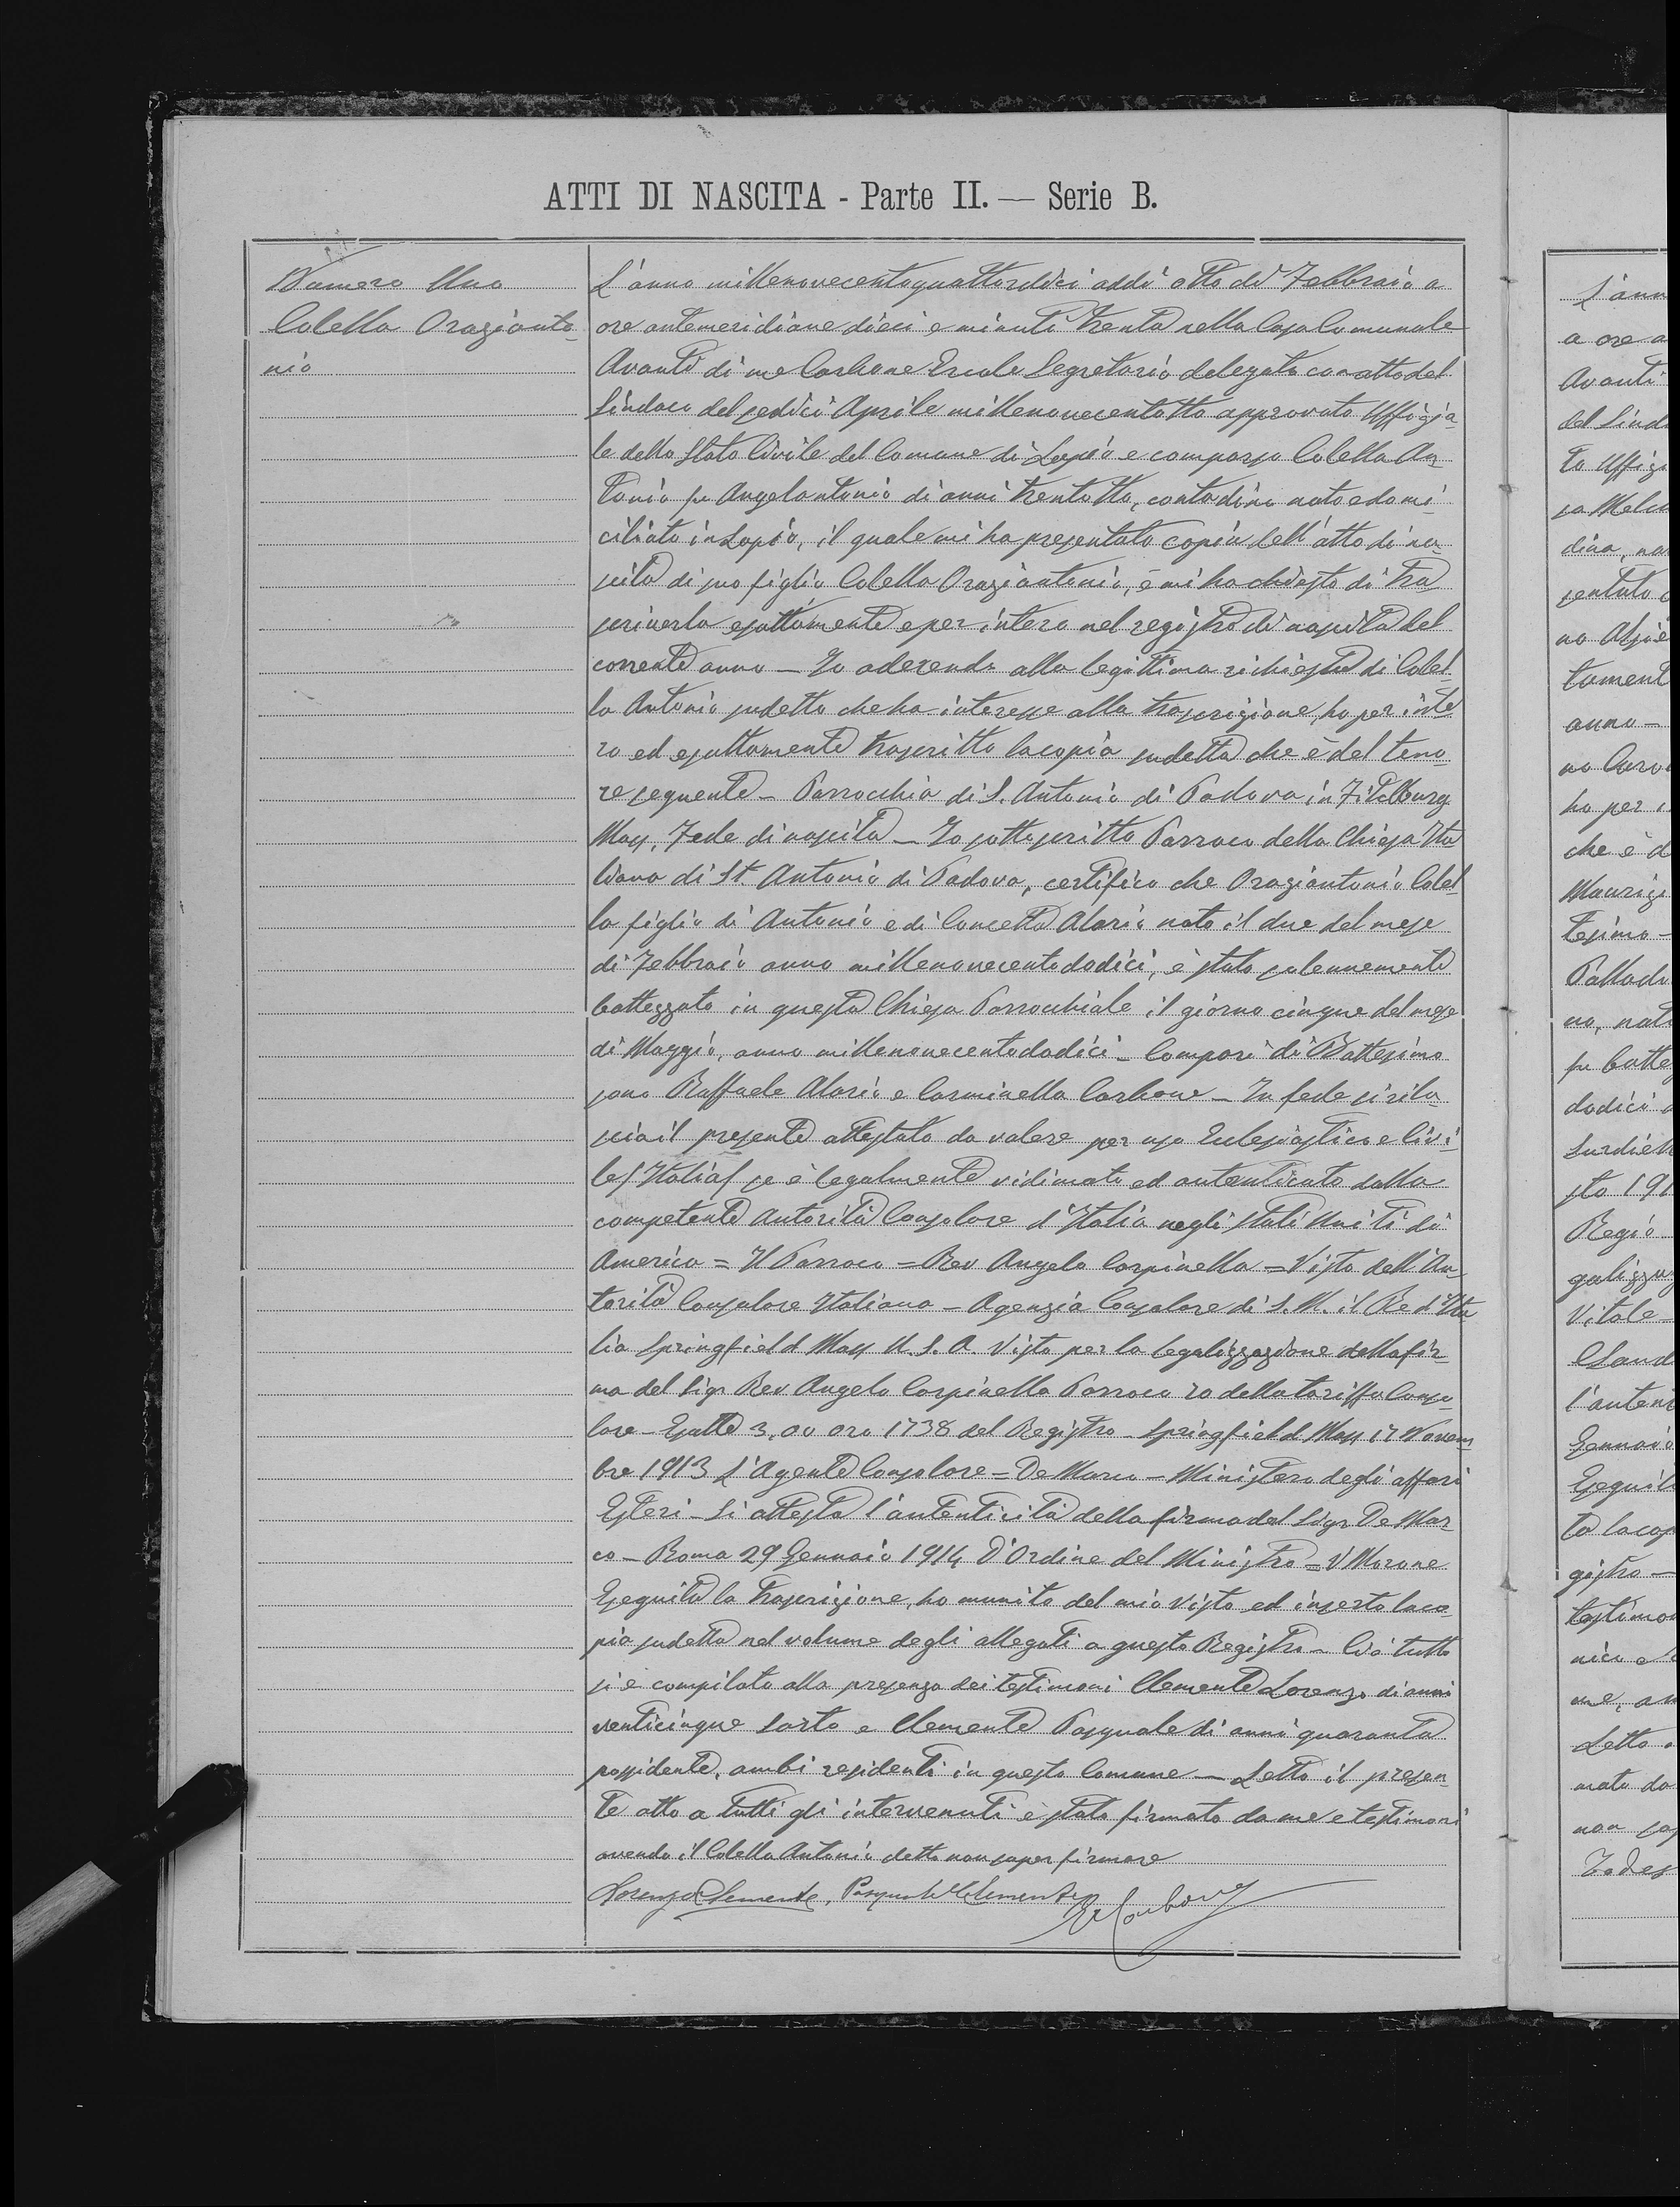 ATTI DI NASCITA - Parte II. — Serie B.
Numero Uno
Colella Oraziantonio
nio
L'anno millenovecentoquattordici addì otto di Febbraio a
ore antemeridiane dieci e minuti trenta nella Casa Comunale
Avanti di me Carbone Ercole Segretario delegato con atto del
Sindaco del sedici Aprile millenovecentotto approvato Uffizia-
le dello Stato Civile del Comune di Lapio e comparso Colella An-
tonio fu Angelantonio di anni trentotto, contadino nato e domi-
ciliato in Lapio, il quale mi ha presentato copia dell'atto di na-
scita di suo figlio Colella Oraziantonio, e mi ha chiesto di tra
scriverla esattamente e per intero nel registro di nascita del
corrente anno — Io aderendo alla legittima richiesta di Colel-
la Antonio sudetto che ha interesse alla trascrizione, ho per inte
ro ed esattamente trascritto la copia sudetta che è del teno-
re seguente — Parrocchia di S. Antonio di Padova in Fitelburg
Mass, Fede di nascita — Io sottoscritto Parroco della Chiesa Ita
liana di St. Antonio di Padova, certifico che Oraziantonio Colel-
la figlio di Antonio e di Concetta Alario nato il due del mese
di Febbraio anno millenovecentododici, è stato solennemente
battezzato in questa Chiesa Parrocchiale il giorno cinque del mese
di Maggio, anno millenovecentododici — Compari di Battesimo
sono Raffaele Alario e Carminella Carbone — In fede si rila-
scia il presente attestato da valere per uso Eclesiastico e Civi-
le (Italia) se è legalmente vidimato ed autenticato dalla
competente Autorità Consolare d'Italia negli Stati Uniti di
America = Il Parroco = Rev Angelo Carpinella = Visto dell'Au-
torità Consolare Italiana — Agenzia Consolare di S. M. il Re d'Ita
lia Springfield Mass U. S. A. Visto per la legalizzazione della fir-
ma del Sigr Rev Angelo Carpinella Parroco 70 della tariffa Conso-
lare — Esatte 3.00 oro 1738 del Registro — Springfield Mass 17 Novem-
bre 1913 L'Agente Consolare = De Marco — Ministero degli affari
Esteri — Si attesta l'autenticità della firma del Sigr De Mar-
co — Roma 29 Gennaio 1914 D'Ordine del Ministro = V Morone
Eseguita la trascrizione, ho munito del mio visto ed inserto la co-
pia sudetta nel volume degli allegati a questo Registro — Ciò tutto
si è compilato alla presenza dei testimoni Clemente Lorenzo di anni
venticinque Sarto e Clemente Pasquale di anni quaranta
possidente, ambi residenti in questo Comune — Letto il presen-
te atto a tutti gli intervenuti è stato firmato da me e testimoni
avendo il Colella Antonio detto non saper firmare
Lorenzo Clemente, Pasquale Clemente
E Carbone